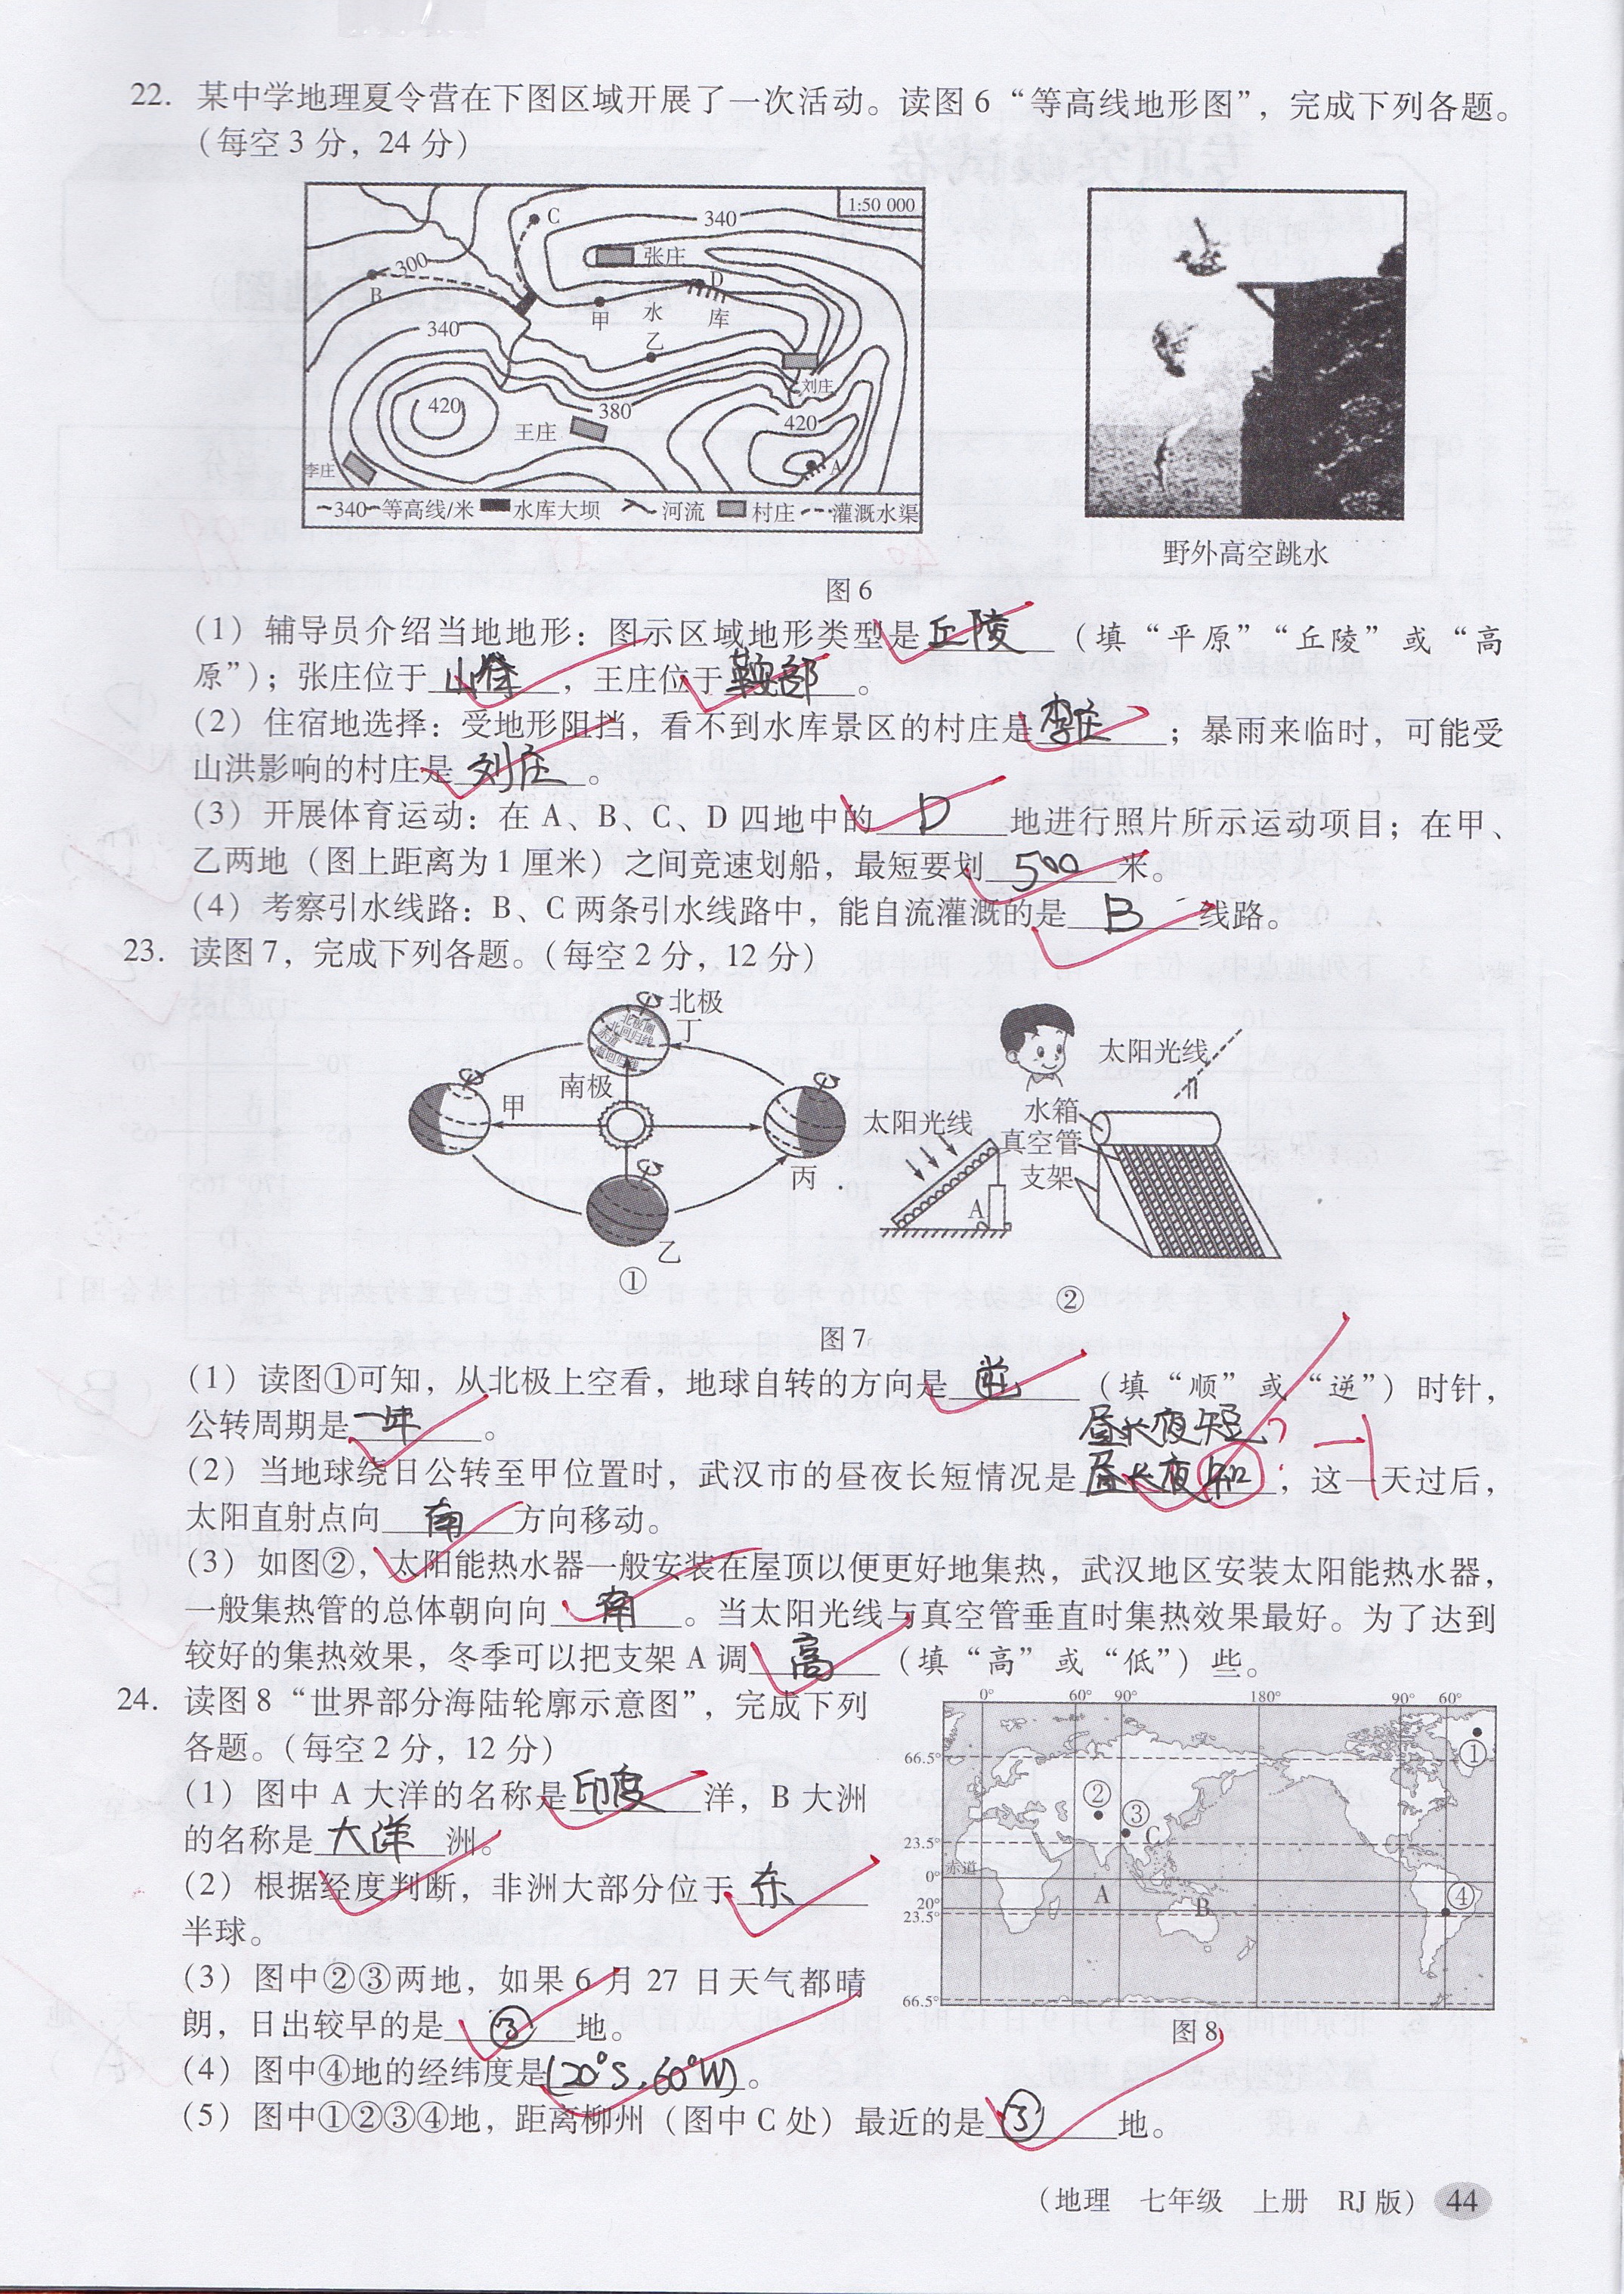 22. 某中学地理夏令营在下图区域开展了一次活动。读图6“等高线地形图”，完成下列各题。
（每空3分，24分）
1:50 000
C
340
张庄
300
B
D
甲
水
库
乙
340
刘庄
420
380
420
王庄
A
李庄
340 等高线/米 水库大坝 河流 村庄 灌溉水渠
野外高空跳水
图6
（1）辅导员介绍当地地形：图示区域地形类型是丘陵（填“平原”“丘陵”或“高
原”）；张庄位于山脊，王庄位于鞍部。
（2）住宿地选择：受地形阻挡，看不到水库景区的村庄是李庄；暴雨来临时，可能受
山洪影响的村庄是刘庄。
（3）开展体育运动：在A、B、C、D四地中的D地进行照片所示运动项目；在甲、
乙两地（图上距离为1厘米）之间竞速划船，最短要划500米。
（4）考察引水线路：B、C两条引水线路中，能自流灌溉的是B线路。
23. 读图7，完成下列各题。（每空2分，12分）
北极
丁
北极圈
北回归线
赤道
南回归线
南极
甲
丙
乙
①
太阳光线
水箱
太阳光线
真空管
支架
A
②
图7
（1）读图①可知，从北极上空看，地球自转的方向是逆（填“顺”或“逆”）时针，
公转周期是一年。
昼长夜短
-1
（2）当地球绕日公转至甲位置时，武汉市的昼夜长短情况是昼长夜；这一天过后，
太阳直射点向南方向移动。
（3）如图②，太阳能热水器一般安装在屋顶以便更好地集热，武汉地区安装太阳能热水器，
一般集热管的总体朝向向南。当太阳光线与真空管垂直时集热效果最好。为了达到
较好的集热效果，冬季可以把支架A调高（填“高”或“低”）些。
24. 读图8“世界部分海陆轮廓示意图”，完成下列
各题。（每空2分，12分）
（1）图中A大洋的名称是印度洋，B大洲
的名称是大洋洲。
（2）根据经度判断，非洲大部分位于东
半球。
（3）图中②③两地，如果6月27日天气都晴
朗，日出较早的是③地。
（4）图中④地的经纬度是(20°S,60°W)。
（5）图中①②③④地，距离柳州（图中C处）最近的是③地。
0° 60° 90° 180° 90° 60°
①
66.5°
②
③
C
23.5°
赤道
0°
A
B
④
20°
23.5°
66.5°
图8
（地理 七年级 上册 RJ版） 44